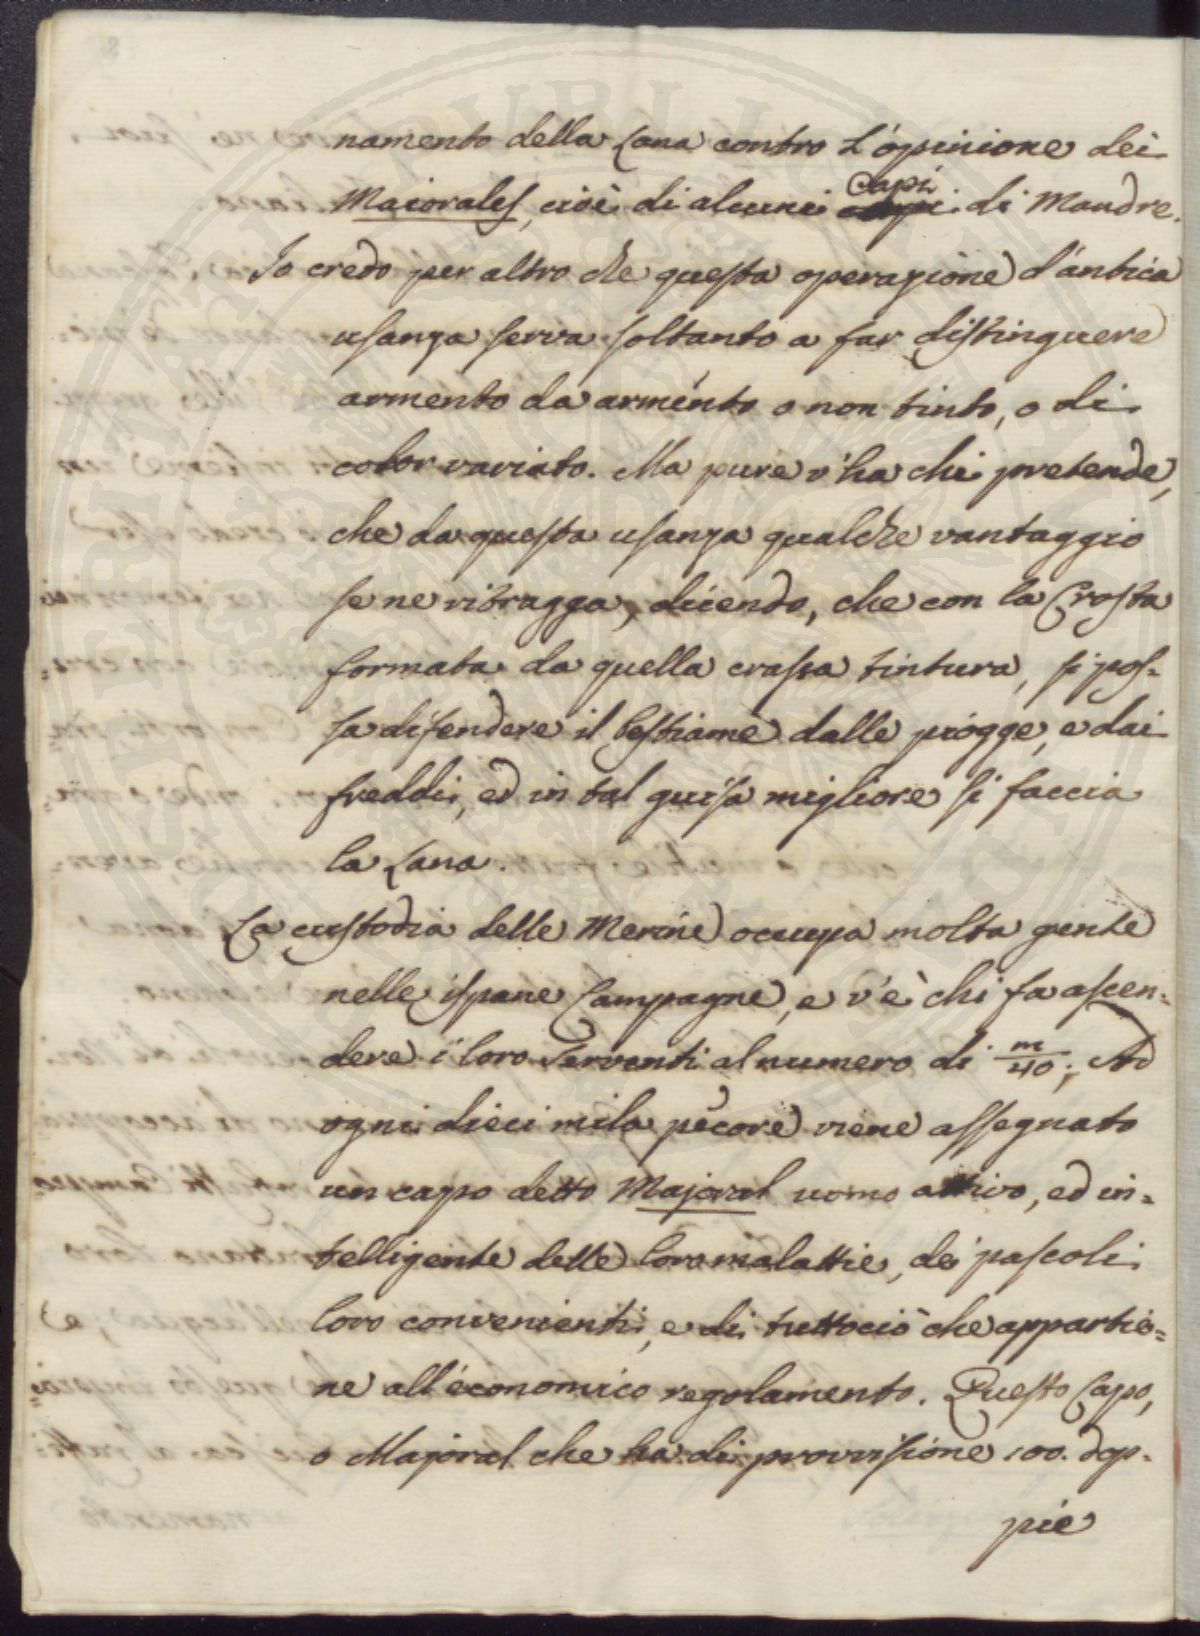 namento della Lana contro l'opinione dei
Maiorales, cioè di alcuni Capi di Mandre.
Io credo per altro che questa operazione d'antica
usanza serva soltanto a far distinguere
armento da armento o non tinto, o di
color variato. Ma pure v'ha chi pretende,
che da questa usanza qualche vantaggio
se ne ritragga, dicendo, che con la Crosta
formata da quella crassa tintura, si pos=
sa difendere il bestiame dalle piogge, e dai
freddi, ed in tal guisa migliore si faccia
la Lana.
La custodia delle Merine occupa molta gente
nelle ispane Campagne, e v'è chi fa ascen=
dere i loro Serventi al numero di m/40; Ad
ogni dieci mila pecore viene assegnato
un capo detto Majoral uomo attivo, ed in=
telligente delle loro malattie, dei pascoli
loro convenienti, e di tuttociò che appartie=
ne all'economico regolamento. Questo Capo,
o Majoral che ha di provvisione 100. dop=
pie